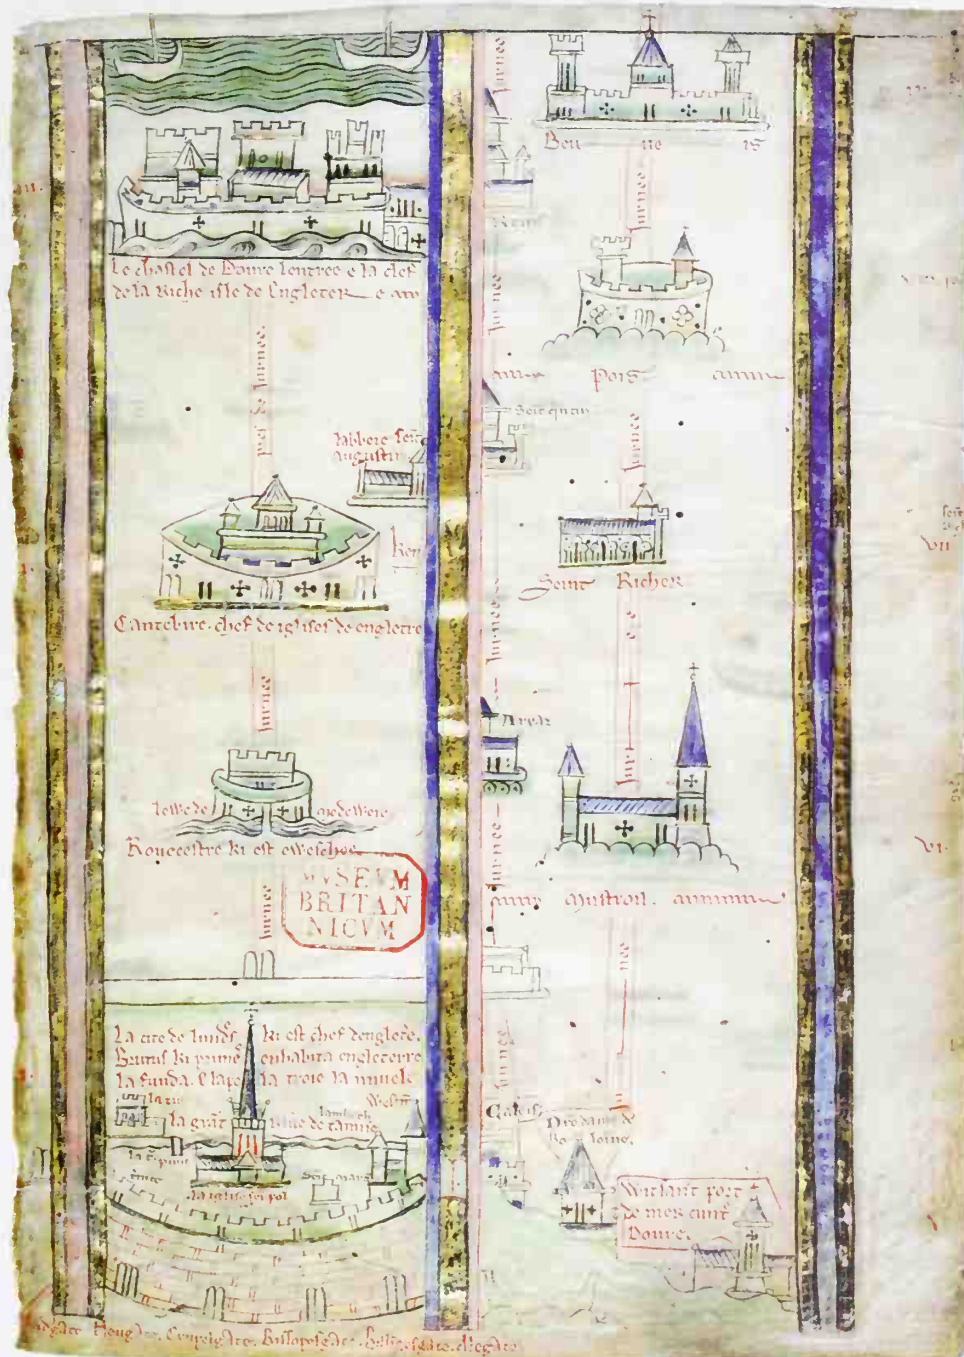 Le chastel de Dovre lentree e la clef
de la riche isle de Engleter
Jurnee
labbeie seint
augustin
Cantebire chef de iglises de engletre
Jurnee
lewe de medeweie
Rouecestre ki est eveschee
Jurnee
MVSEVM
BRITAN
NICVM
La cite de lundres ki est chef dengletere.
Brutus ki primes enhabita engleterre
la funda. E lapela troie la nuvele
la tur
la grant
lambeth
Westm
de tamise
punt
la iglise sei pol
Audgate Neugate Crupelgate. Bissopesgate. Billingesgate. Allegate
Jurnee
Beuueis
Jurnee
Reins
Jurnee
Pois
Seint quintin
Jurnee
Seint Richer
Jurnee
Arraz
Jurnee
Mustroil
Jurnee
Caleis
Nre dame de
Boloine.
Witsant port
de mer cuntre
Dovre.
VII
VI.